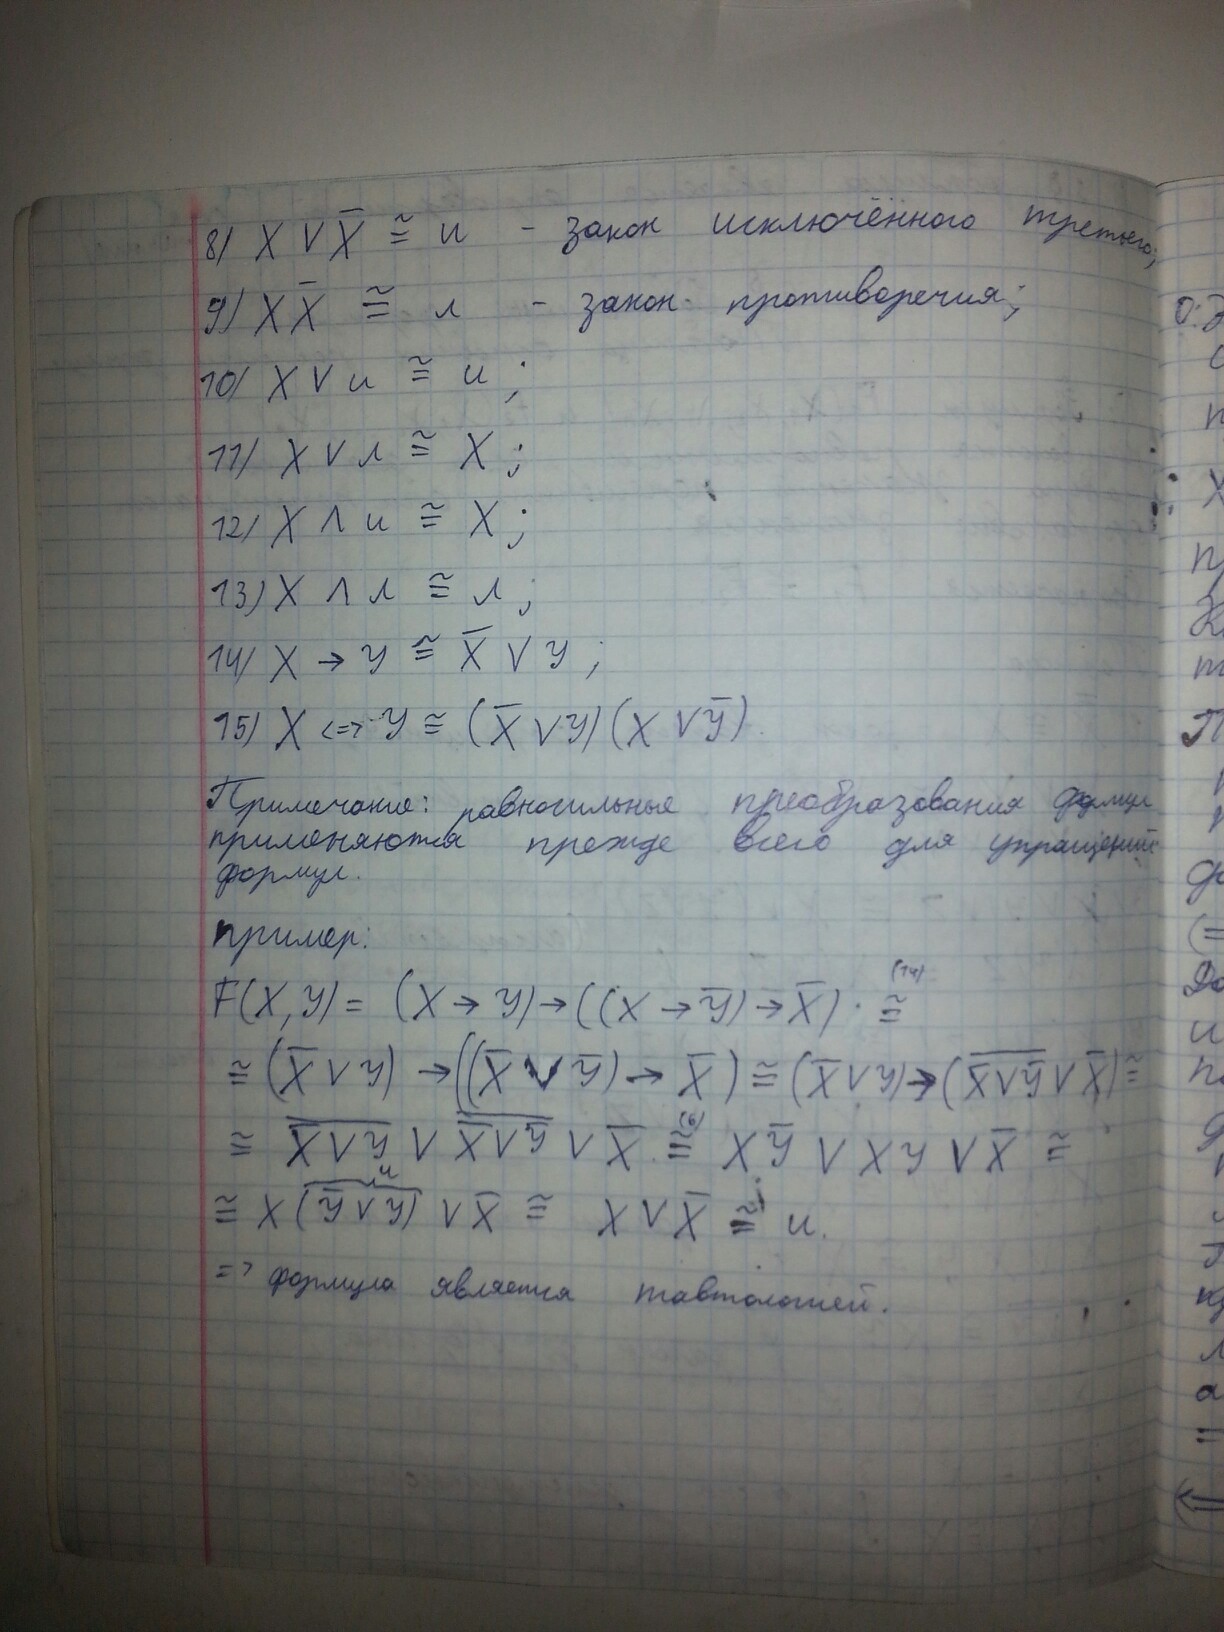 8) X ∨ X̅ ≅ и - закон исключённого третьего;
9) X X̅ ≅ л - закон противоречия;
10) X ∨ и ≅ и ;
11) X ∨ л ≅ X ;
12) X ∧ и ≅ X ;
13) X ∧ л ≅ л ;
14) X → У ≅ X̅ ∨ У ;
15) X <=> У ≅ (X̅ ∨ У)(X ∨ У̅)
Примечание: равносильные преобразования формул
применяются прежде всего для упрощений
формул.
пример:
(14)
F(X, У) = (X → У) → ((X → У̅) → X̅) · ≅
≅ (X̅ ∨ У) → ((X̅ ∨ У̅) → X̅) ≅ (X̅ ∨ У) → (X̅̅ ̅∨̅ ̅У̅̅ ∨ X̅) ≅
≅ X̅̅ ̅∨̅ ̅У̅ ∨ X̅̅ ̅∨̅ ̅У̅̅ ∨ X̅ ≅ (6) X У̅ ∨ X У ∨ X̅ ≅
и
≅ X (У̅ ∨ У) ∨ X̅ ≅ X ∨ X̅ ≅ и.
=> формула является тавтологией.